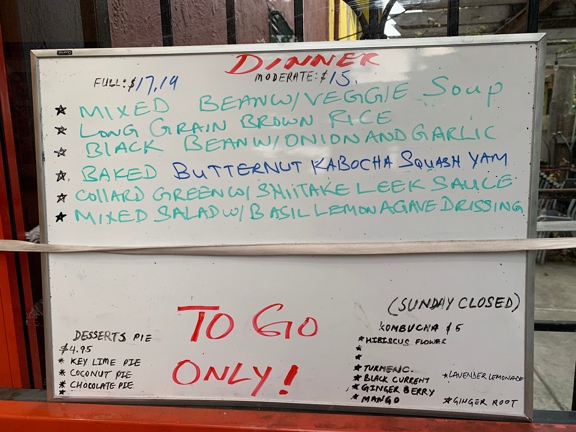 DINNER
FULL: $17.19 MODERATE: $15.
★ MIXED BEAN W/ VEGGIE Soup
★ LONG GRAIN BROWN RICE
★ BLACK BEAN W/ ONION AND GARLIC
★ BAKED BUTTERNUT KABOCHA SQUASH YAM
★ COLLARD GREEN W/ SHITAKE LEEK SAUCE
★ MIXED SALAD W/ BASIL LEMON AGAVE DRISSING
TO GO
ONLY!
DESSERTS PIE
$4.95
* KEY LIME PIE
* COCONUT PIE
* CHOCOLATE PIE
*
(SUNDAY CLOSED)
KOMBUCHA $5
* HIBISCUS FLOWER
*
* TURMERIC.
* BLACK CURRENT * LAVENDER LEMONADE
* GINGER BERRY
* MANGO * GINGER ROOT